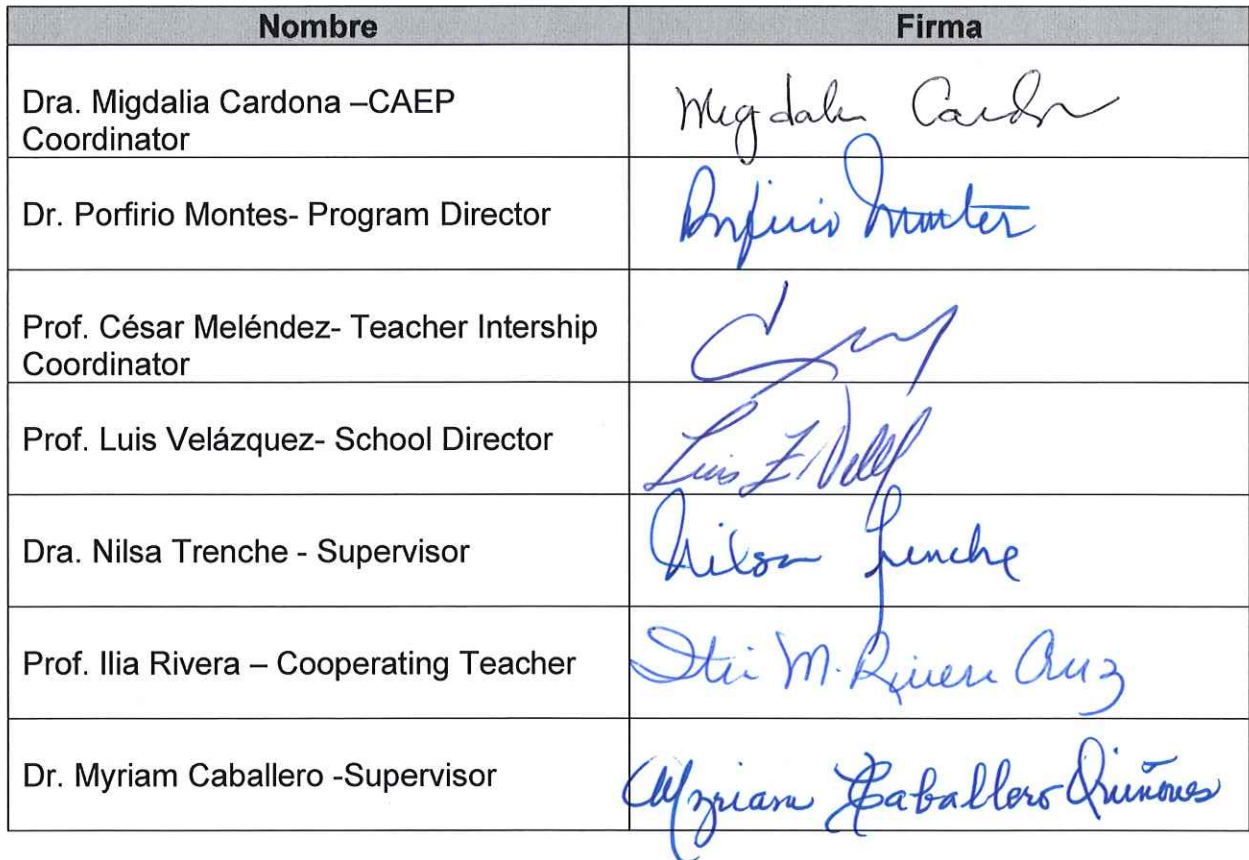 Nombre Firma
Dra. Migdalia Cardona –CAEP
Coordinator
Migdalia Cardon
Dr. Porfirio Montes- Program Director
Porfirio Montes
Prof. César Meléndez- Teacher Intership
Coordinator
Prof. Luis Velázquez- School Director
Luis
Dra. Nilsa Trenche - Supervisor
Nilsa Trenche
Prof. Ilia Rivera – Cooperating Teacher
Ilia M. Rivera Cruz
Dr. Myriam Caballero -Supervisor
Myriam Caballero Quiñones